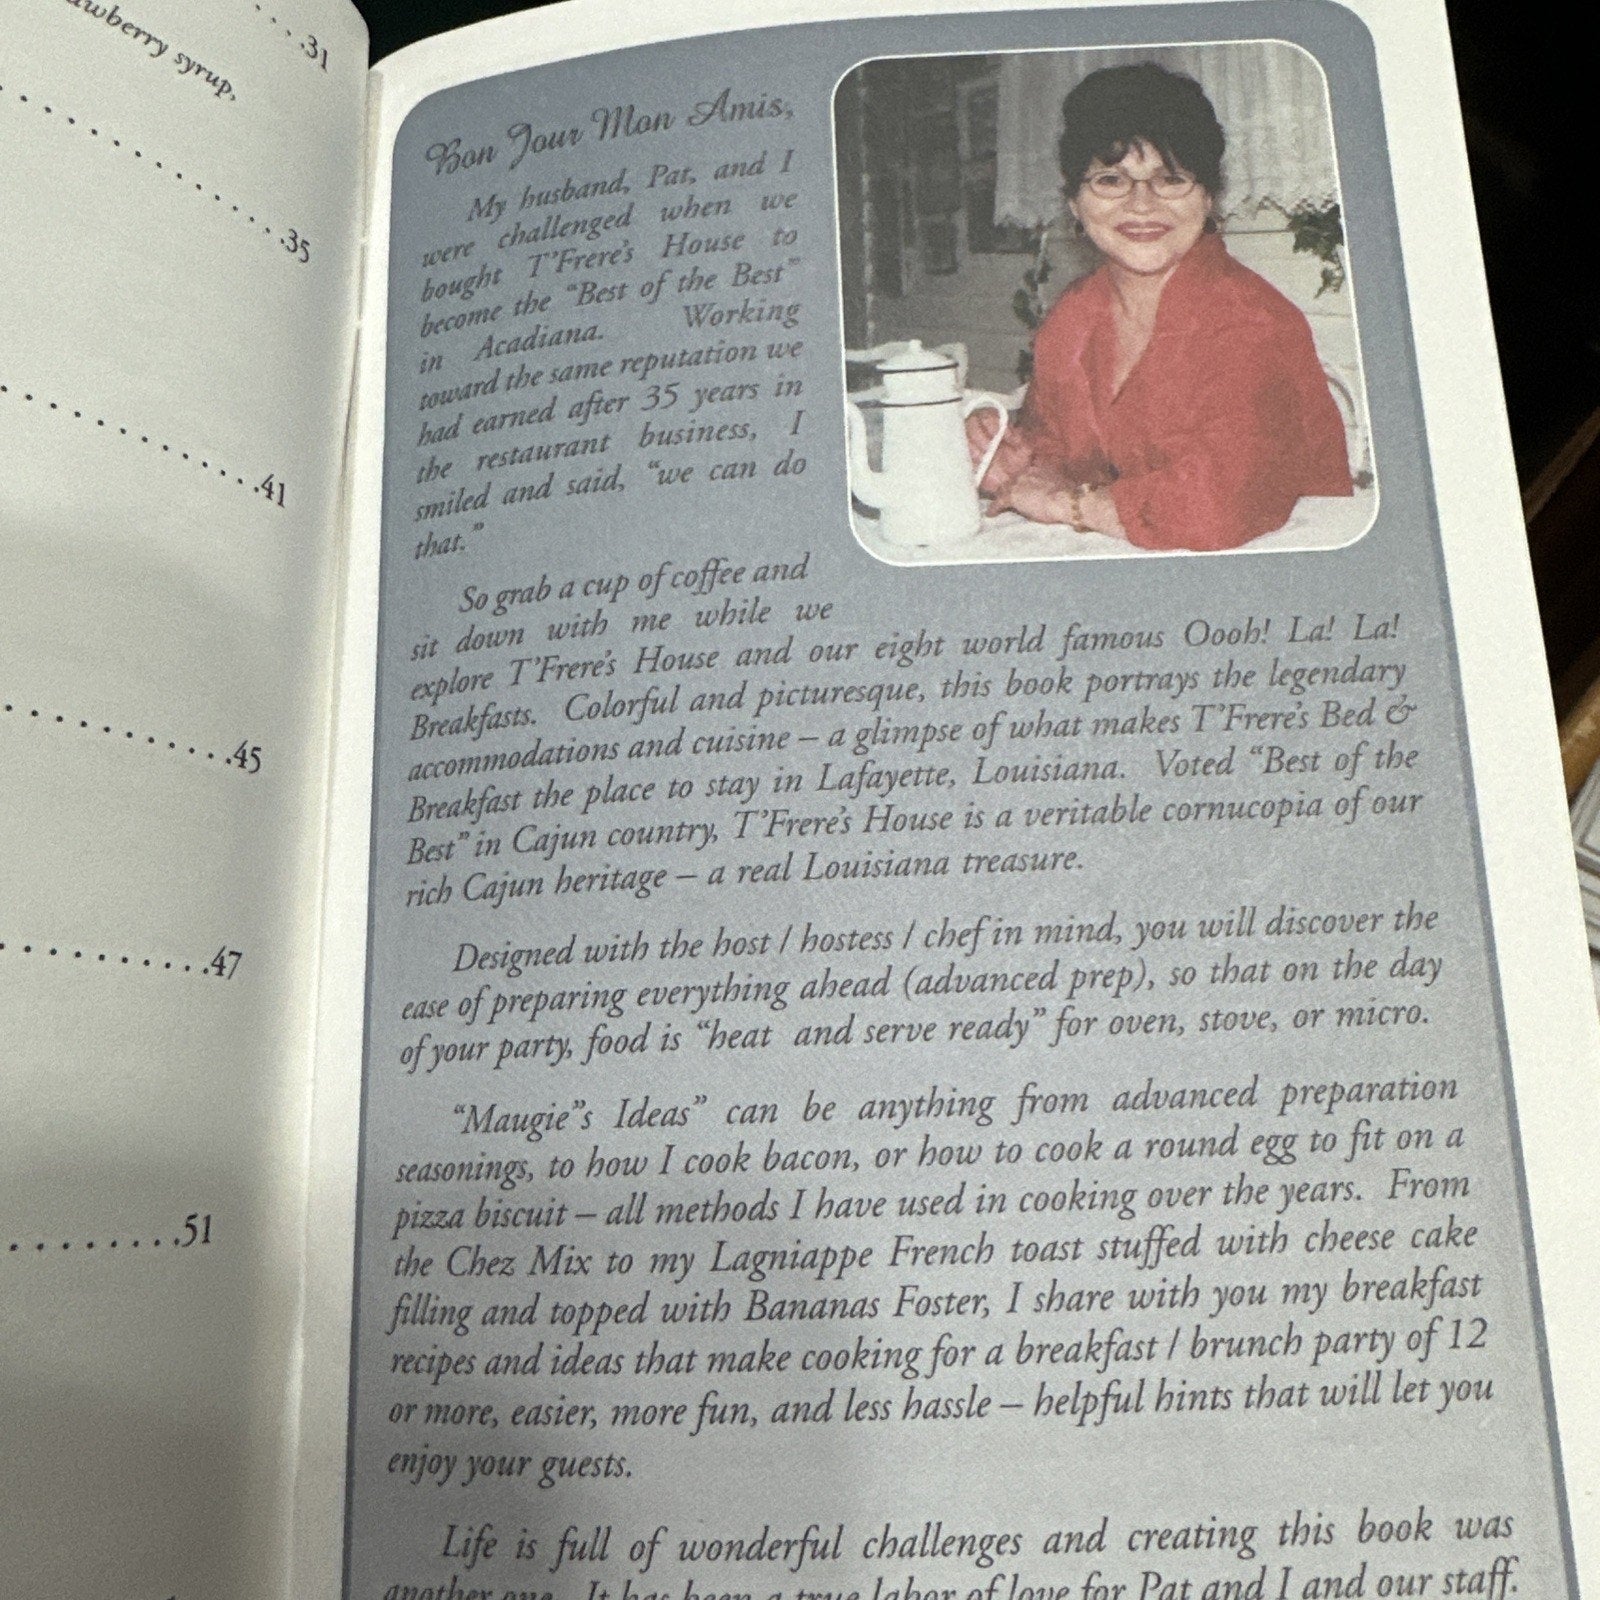 awberry syrup,
. . . .31
. . . . . . . . . . . . . . . . . .35
. . . . . . . . . . . . . . . . . .41
. . . . . . . . . . . . . . . .45
. . . . . . . . . . . . . .47
. . . . . . . . .51
Bon Jour Mon Amis,
My husband, Pat, and I
were challenged when we
bought T'Frere's House to
become the “Best of the Best”
in Acadiana. Working
toward the same reputation we
had earned after 35 years in
the restaurant business, I
smiled and said, “we can do
that.”
So grab a cup of coffee and
sit down with me while we
explore T'Frere's House and our eight world famous Oooh! La! La!
Breakfasts. Colorful and picturesque, this book portrays the legendary
accommodations and cuisine – a glimpse of what makes T'Frere's Bed &
Breakfast the place to stay in Lafayette, Louisiana. Voted “Best of the
Best” in Cajun country, T'Frere's House is a veritable cornucopia of our
rich Cajun heritage – a real Louisiana treasure.
Designed with the host / hostess / chef in mind, you will discover the
ease of preparing everything ahead (advanced prep), so that on the day
of your party, food is “heat and serve ready” for oven, stove, or micro.
“Maugie”s Ideas” can be anything from advanced preparation
seasonings, to how I cook bacon, or how to cook a round egg to fit on a
pizza biscuit – all methods I have used in cooking over the years. From
the Chez Mix to my Lagniappe French toast stuffed with cheese cake
filling and topped with Bananas Foster, I share with you my breakfast
recipes and ideas that make cooking for a breakfast / brunch party of 12
or more, easier, more fun, and less hassle – helpful hints that will let you
enjoy your guests.
Life is full of wonderful challenges and creating this book was
another one. It has been a true labor of love for Pat and I and our staff.